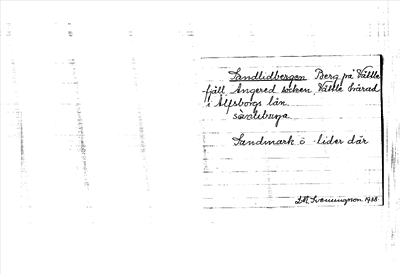 Sandlidbergen Berg på Vättle
fjäll Angered socken, Vättle härad
i Älfsborgs län.
Sandmark o lider där
Svenningson 1938